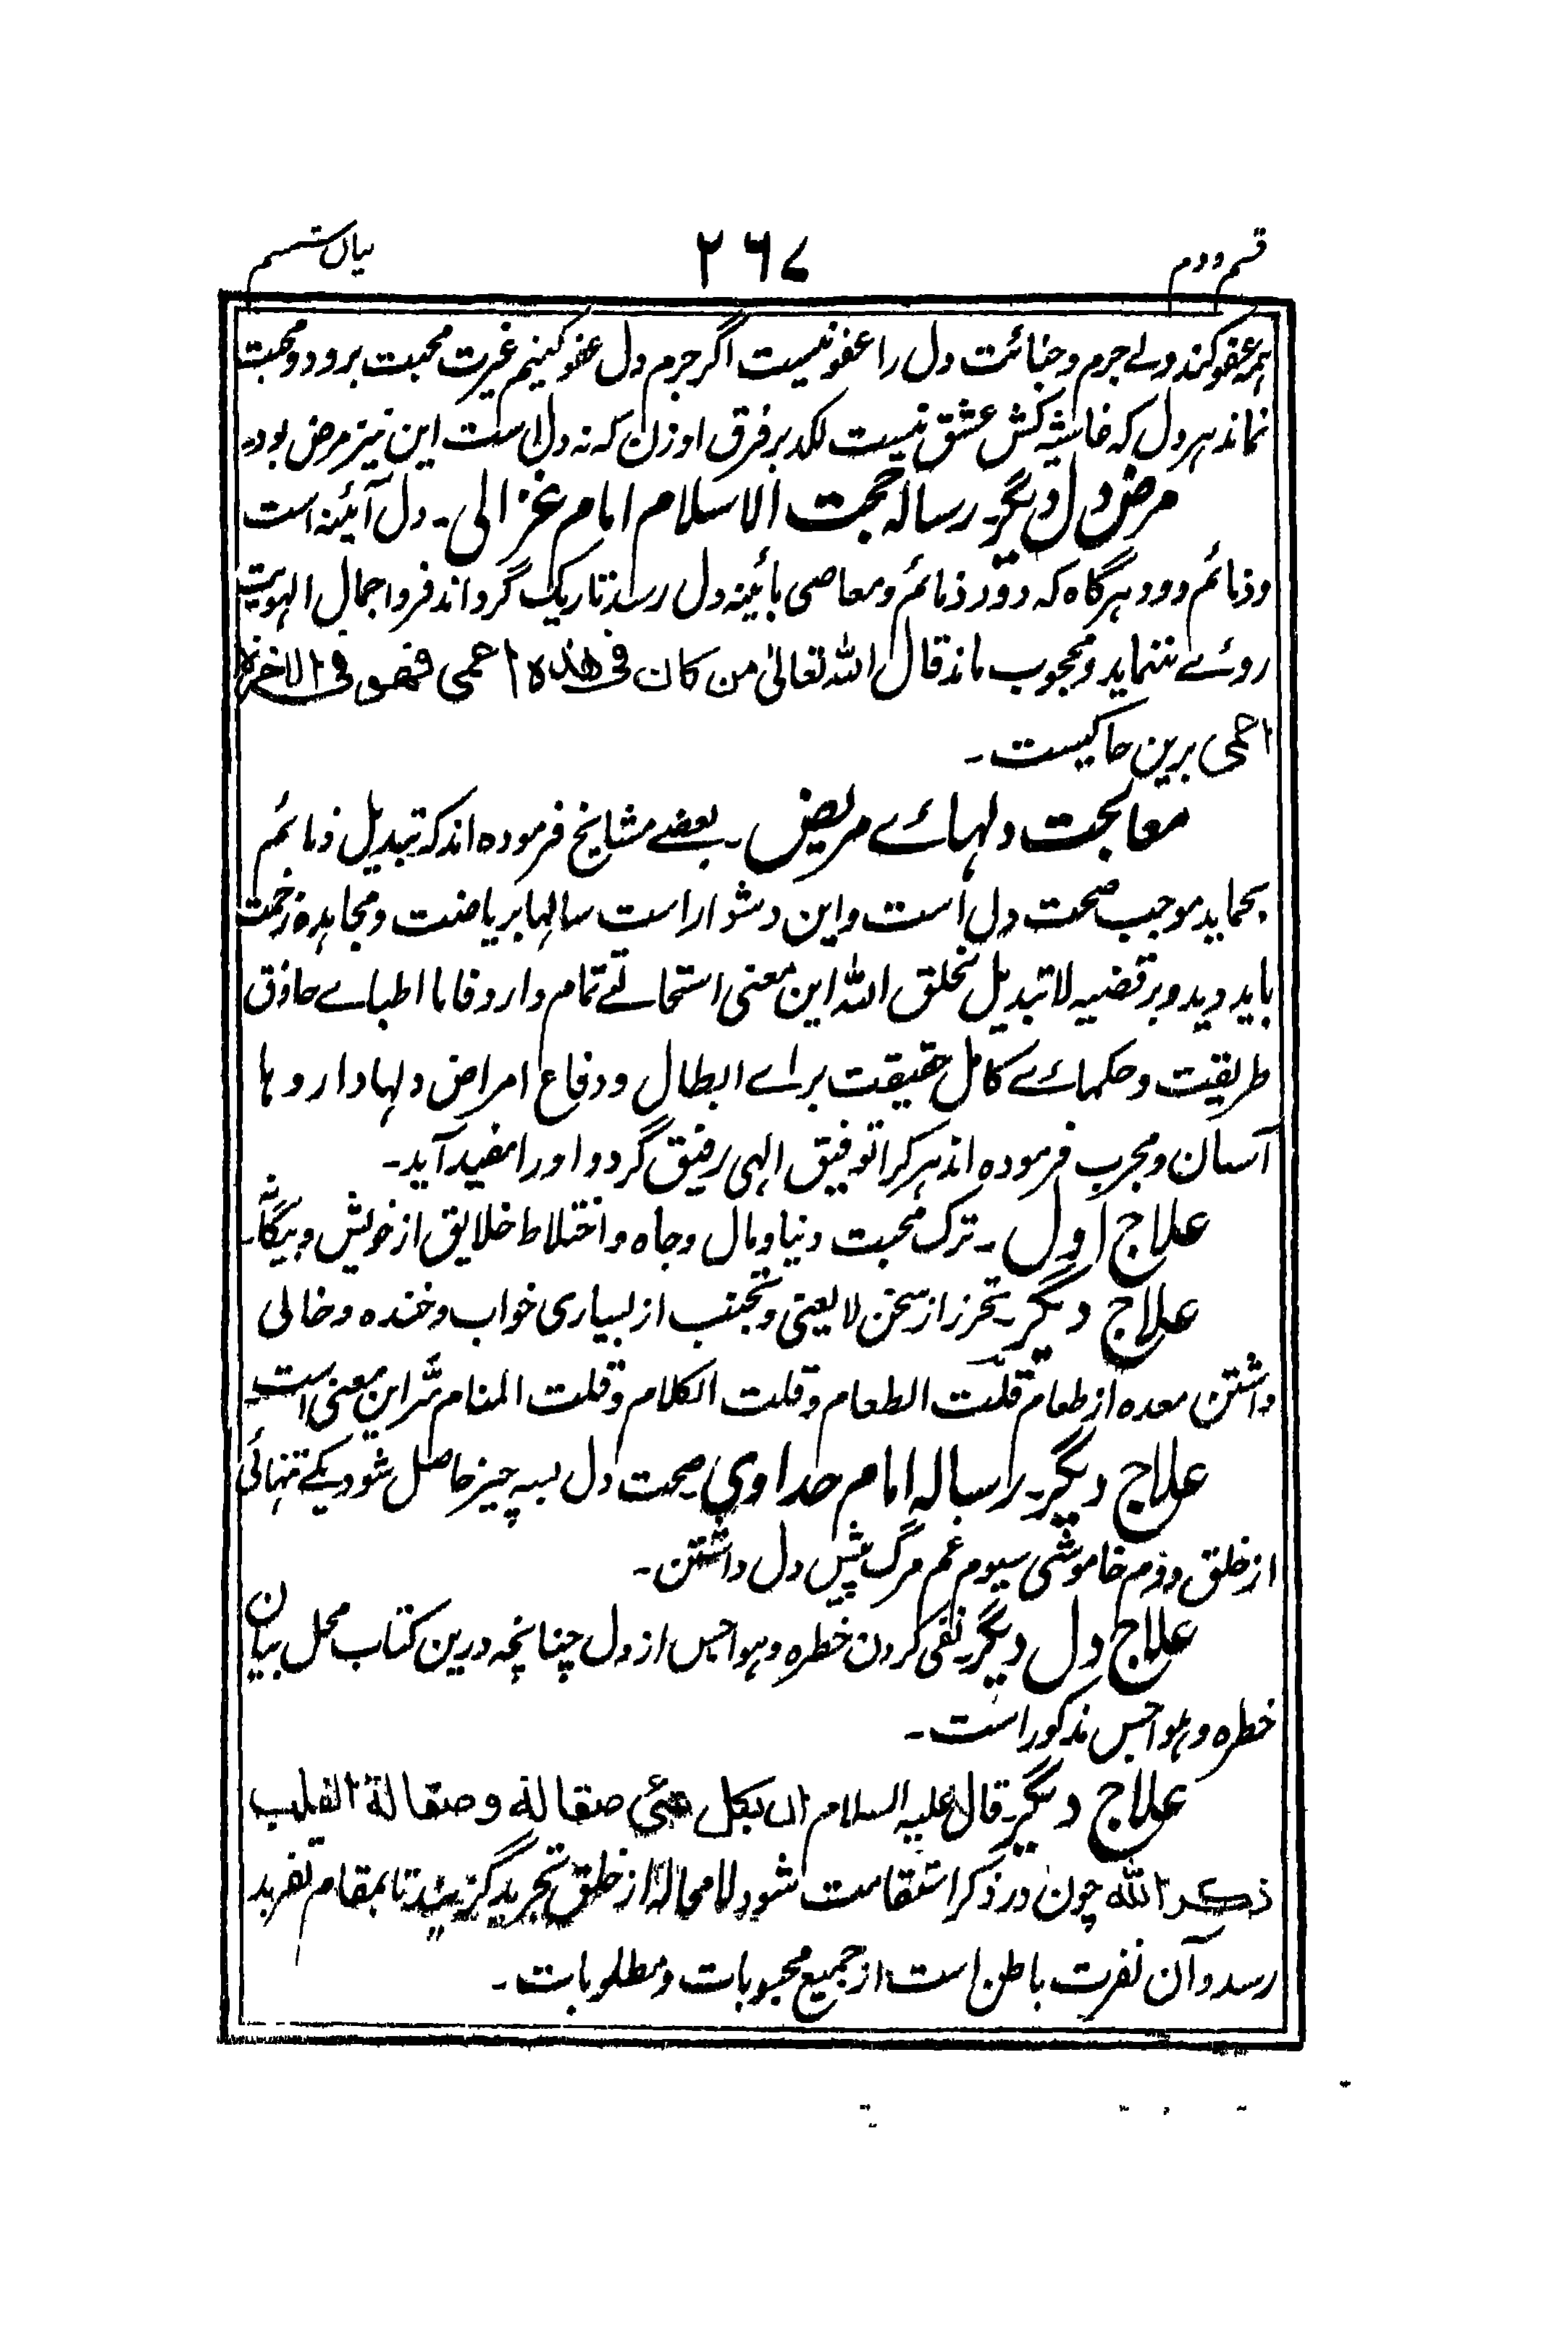 قسم دوم
۲۶۷
بیان ششم
ہمہ عفو کنند ولے جرم و جنائت دل را عفو نیست اگر جرم دل عفو کینم غیرت محبت برود و محبت
نماند ہر دل کہ غاشیہ کش عشق نیست لکد بر فرق او زن کہ نہ دل است این نیز مرض بود۔
مرض دل دیگر۔ رسالہ حجت الاسلام امام غزالی۔ دل آئینہ است
و ذمائم دود ہرگاہ کہ دود ذمائم و معاصی بآئینہ دل رسد تاریک گرداند فردا جمال الہویت
روئے ننماید و محجوب ماند قال اللہ تعالیٰ من کان فی ھذہ اعمی فھو فی الاخرۃ
اعمی برین حاکیست۔
معالجت دلہائے مریض۔ بعضے مشایخ فرمودہ اند کہ تبدیل ذمایم
بحماید موجب صحت دل است و این دشوار است سالہا بریاضت و مجاہدہ زحمت
باید دید و بر قضیہ لا تبدیل لخلق اللہ این معنی استحالتے تمام دارد فاما اطباے حاذق
طریقت و حکمائے کامل حقیقت براے ابطال و دفاع امراض دلہا دارو ہا
آسان و مجرب فرمودہ اند ہر کرا توفیق الہی رفیق گردد او را مفید آید۔
علاج اول۔ ترک محبت دنیا و مال و جاہ و اختلاط خلایق از خویش و بیگانہ۔
علاج دیگر۔ تحرز از سخن لایعنی و تجنب از بسیاری خواب و خندہ و خالی
داشتن معدہ از طعام قلّت الطعام و قلت الکلام و قلت المنام سّر این معنی است۔
علاج دیگر۔ رسالہ امام حدادی صحت دل بسہ چیز حاصل شود یکے تنہائی
از خلق دوم خاموشی سیوم غم مرگ پیش دل داشتن۔
علاج دل دیگر۔ نفی کردن خطرہ و ہواجس از دل چنانچہ درین کتاب محل بیان
خطرہ و ہواجس مذکور است۔
علاج دیگر۔ قال علیہ السلام ان لکل شئی صقالة و صقالة القلب
ذکر اللہ چون در ذکر استقامت شود لا محالہ از خلق تجرید گزیند تا بمقام تفرید
رسد و آن نفرت باطن است از جمیع محبوبات و مطلوبات۔